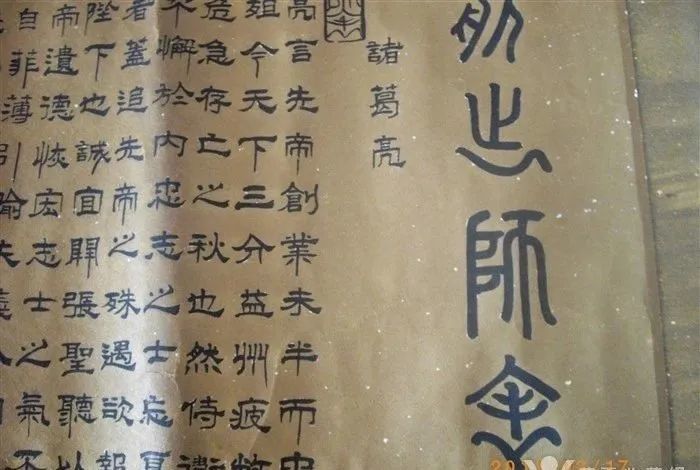 前出師表
諸葛亮
亮言先帝創業未半而中
殂今天下三分益州疲敝
危急存亡之秋也然侍衛
不懈於內忠志之士忘
者蓋追先帝之殊遇欲報
陛下也誠宜開張聖聽以
帝遺德恢宏志士之氣不
自菲薄引喻失義